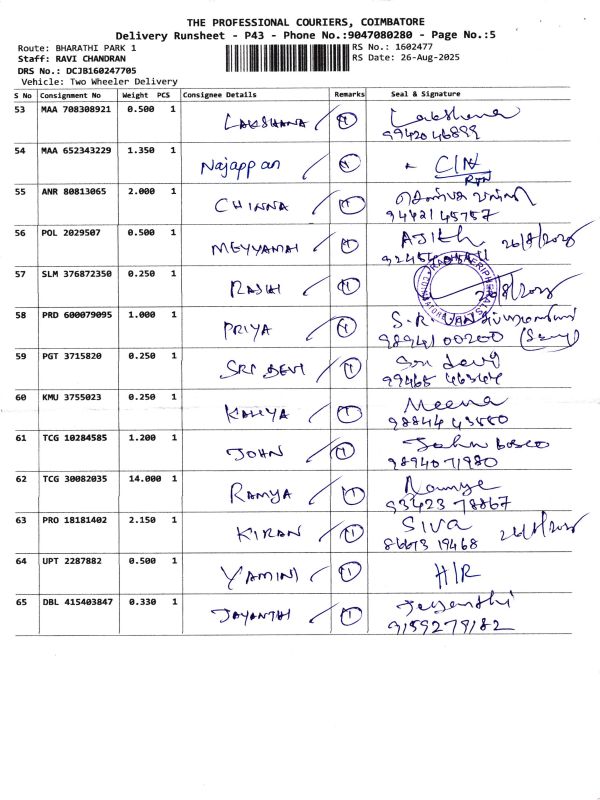 THE PROFESSIONAL COURIERS, COIMBATORE
Delivery Runsheet - P43 - Phone No.:9047080280 - Page No.:5
Route: BHARATHI PARK 1 RS No.: 1602477
Staff: RAVI CHANDRAN RS Date: 26-Aug-2025
DRS No.: DCJB160247705
Vehicle: Two Wheeler Delivery
S No Consignment No Weight PCS Consignee Details Remarks Seal & Signature
53 MAA 708308921 0.500 1 LAKSHANA Lakshana
9942046899
54 MAA 652343229 1.350 1 Najappan C/N
55 ANR 80813065 2.000 1 CHINNA
9442145757
56 POL 2029507 0.500 1 MEYYAMAI AJith 26/8/2025
57 SLM 376872350 0.250 1 RAJHI
58 PRD 600079095 1.000 1 PRIYA S.R.
98941 00200
59 PGT 3715820 0.250 1 SRI DEVI Sri devi
99465 46344
60 KMU 3755023 0.250 1 KAVYA Meena
98844 43550
61 TCG 10284585 1.200 1 JOHN John bosco
9894071980
62 TCG 30082035 14.000 1 RAMYA Ramya
93423 78867
63 PRO 18181402 2.150 1 KIRAN SIVA 26/8/2025
86673 19468
64 UPT 2287882 0.500 1 YAMINI H/R
65 DBL 415403847 0.330 1 JAYANTHI Jayanthi
9159279182